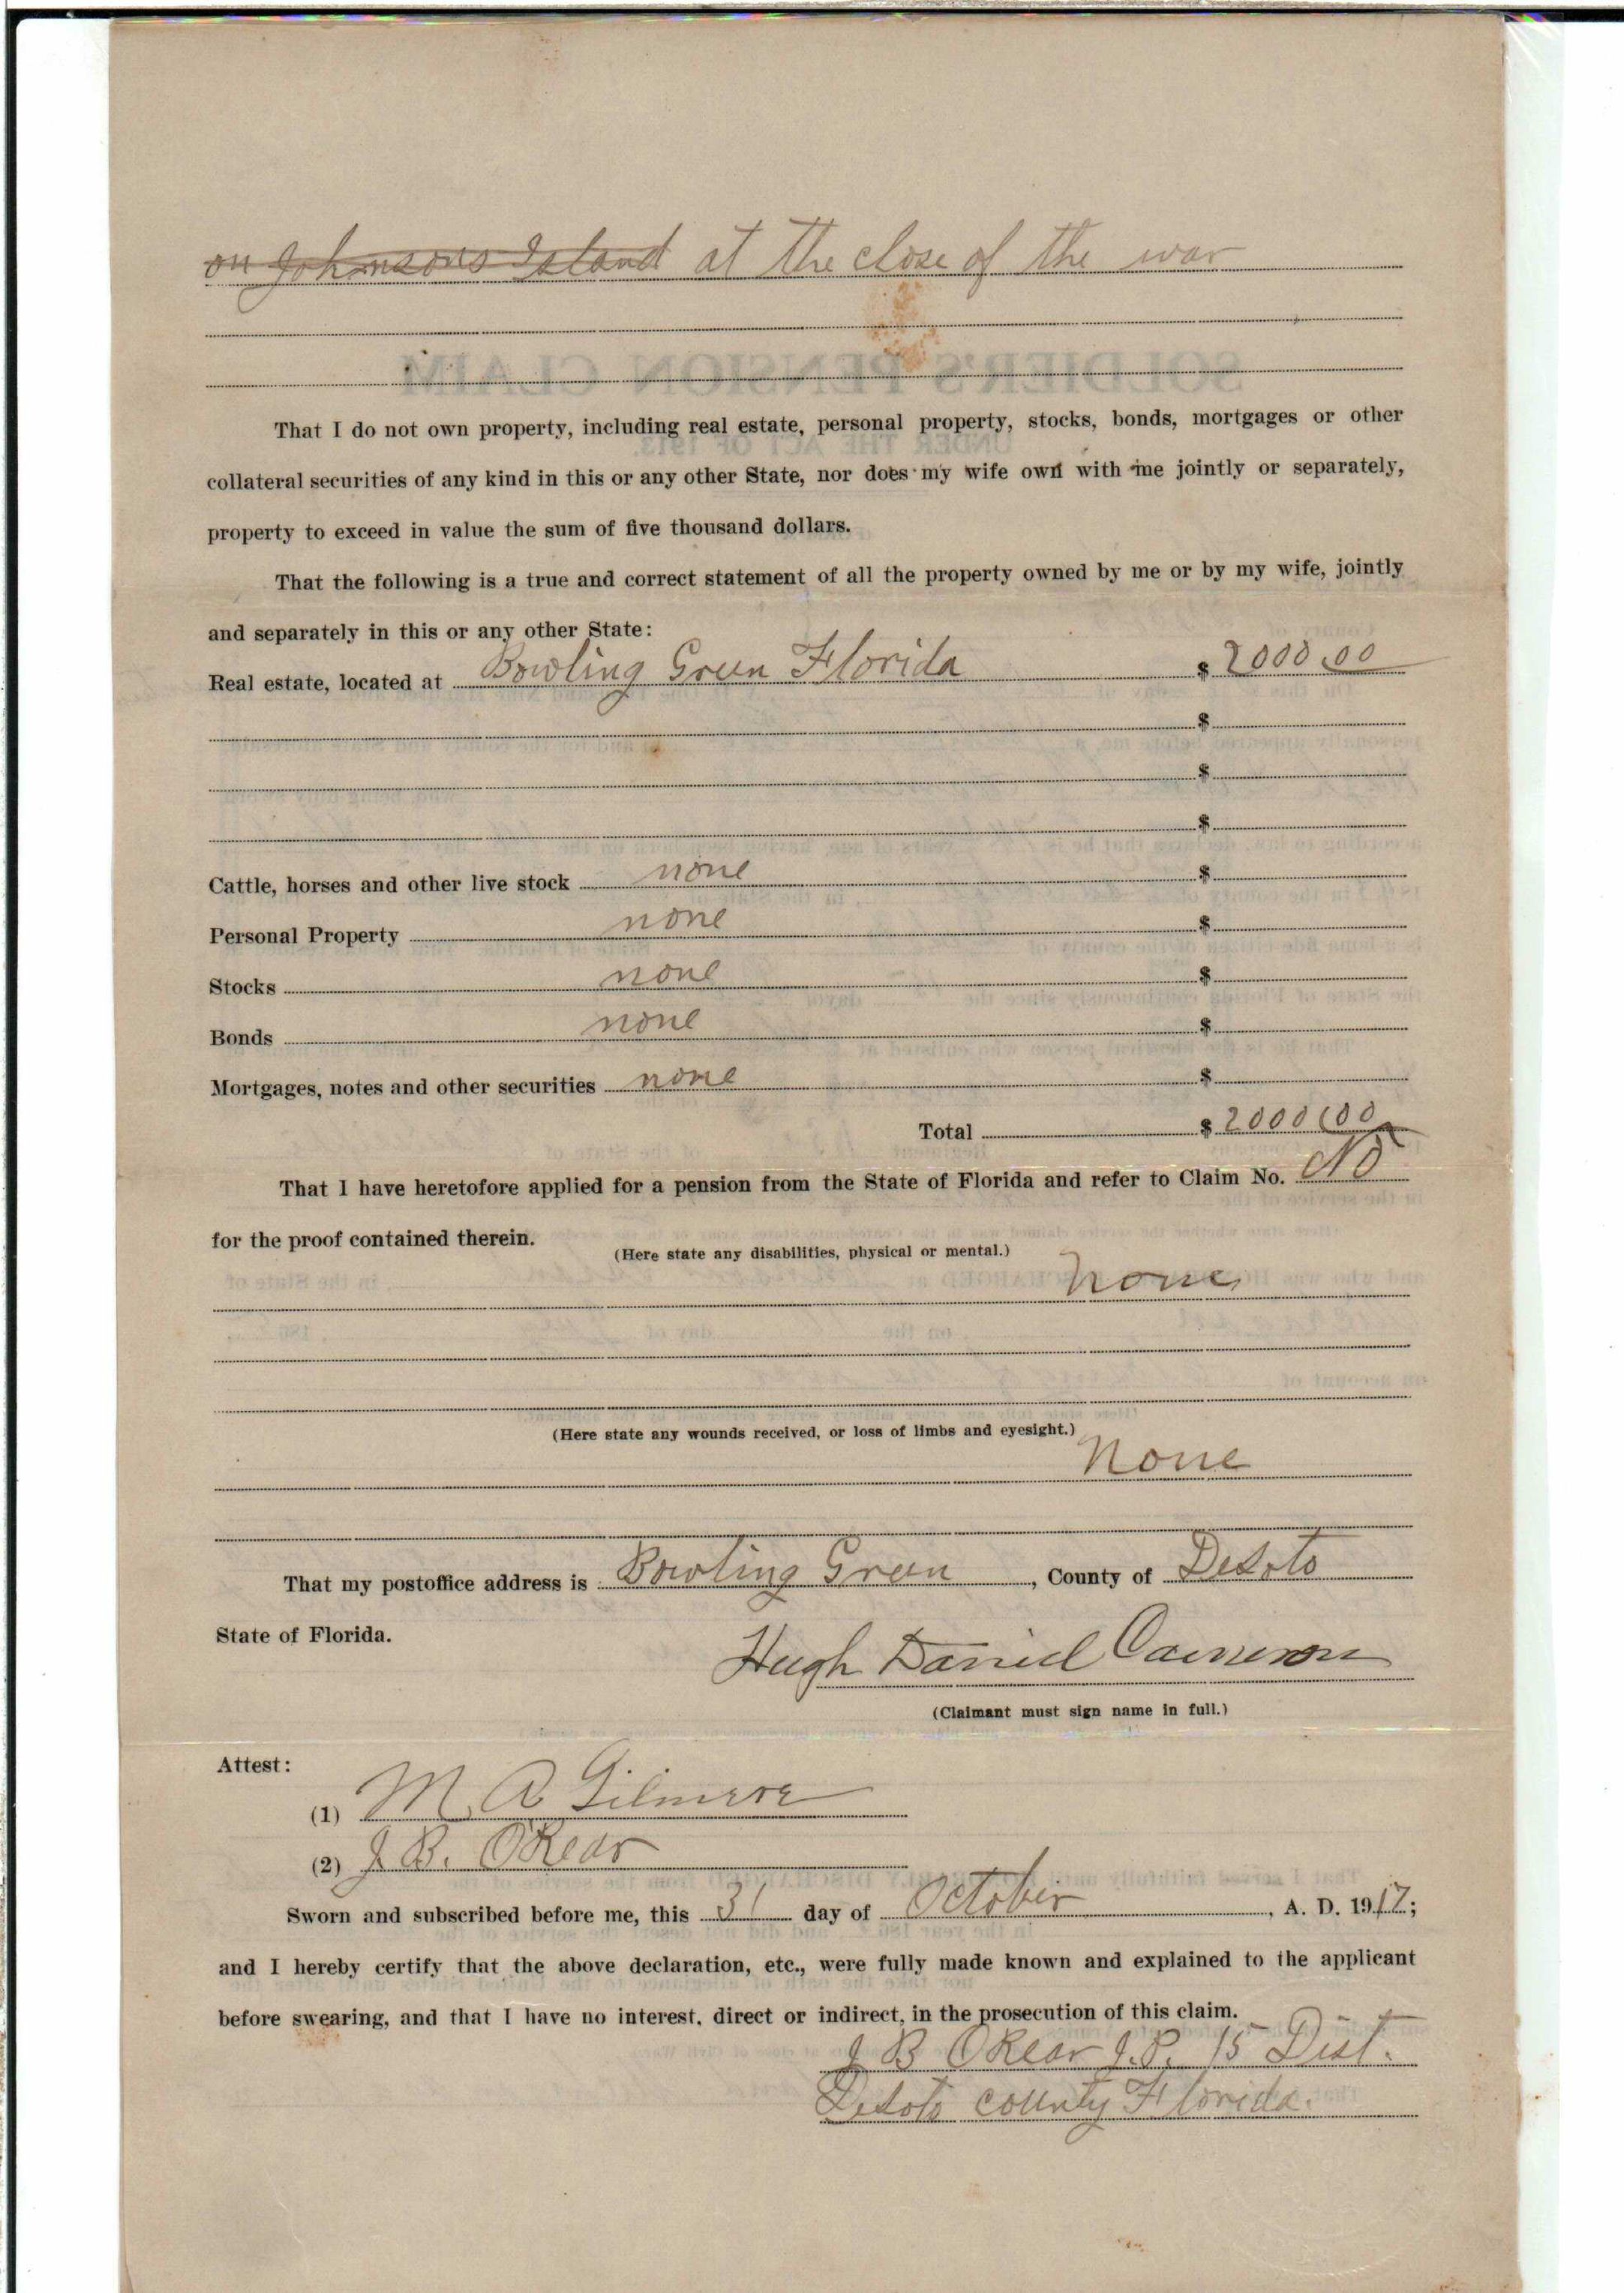 on Johnsons Island at the close of the war
SOLDIER'S PENSION CLAIM
UNDER THE ACT OF 1913.
That I do not own property, including real estate, personal property, stocks, bonds, mortgages or other
collateral securities of any kind in this or any other State, nor does my wife own with me jointly or separately,
property to exceed in value the sum of five thousand dollars.
That the following is a true and correct statement of all the property owned by me or by my wife, jointly
and separately in this or any other State:
Real estate, located at Bowling Green Florida $ 2000.00
$
$
$
Cattle, horses and other live stock none $
Personal Property none $
Stocks none $
Bonds none $
Mortgages, notes and other securities none $
Total $ 2000.00
That I have heretofore applied for a pension from the State of Florida and refer to Claim No. No
for the proof contained therein.
(Here state any disabilities, physical or mental.)
None
(Here state any wounds received, or loss of limbs and eyesight.)
None
That my postoffice address is Bowling Green, County of DeSoto
State of Florida.
Hugh Daniel Cameron
(Claimant must sign name in full.)
Attest:
(1) M A Gilmore
(2) J. B. O'Rear
Sworn and subscribed before me, this 31 day of October, A. D. 1917;
and I hereby certify that the above declaration, etc., were fully made known and explained to the applicant
before swearing, and that I have no interest, direct or indirect, in the prosecution of this claim.
J B O'Rear J.P. 15 Dist.
DeSoto county Florida.